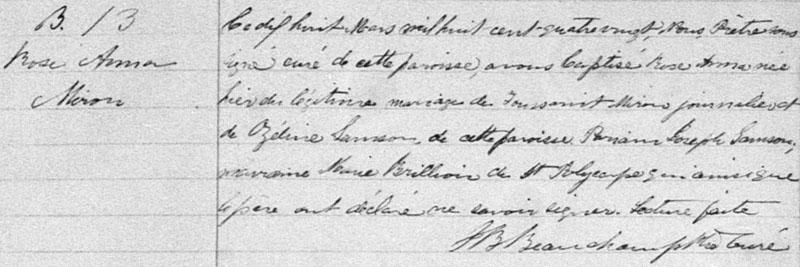 B. 13
Rose Anna
Miron
Le dix huit Mars mil huit cent quatre vingt, Nous Prêtre sous
signé curé de cette paroisse, avons baptisé Rose Anna née
hier du légitime mariage de Toussaint Miron journalier et
de Ozéline Samson, de cette paroisse. Parrain Joseph Samson,
marraine Marie Brillion de St Polycarpe qui ainsi que
le père ont déclaré ne savoir signer. Lecture faite
J B Beauchamp Ptre Curé